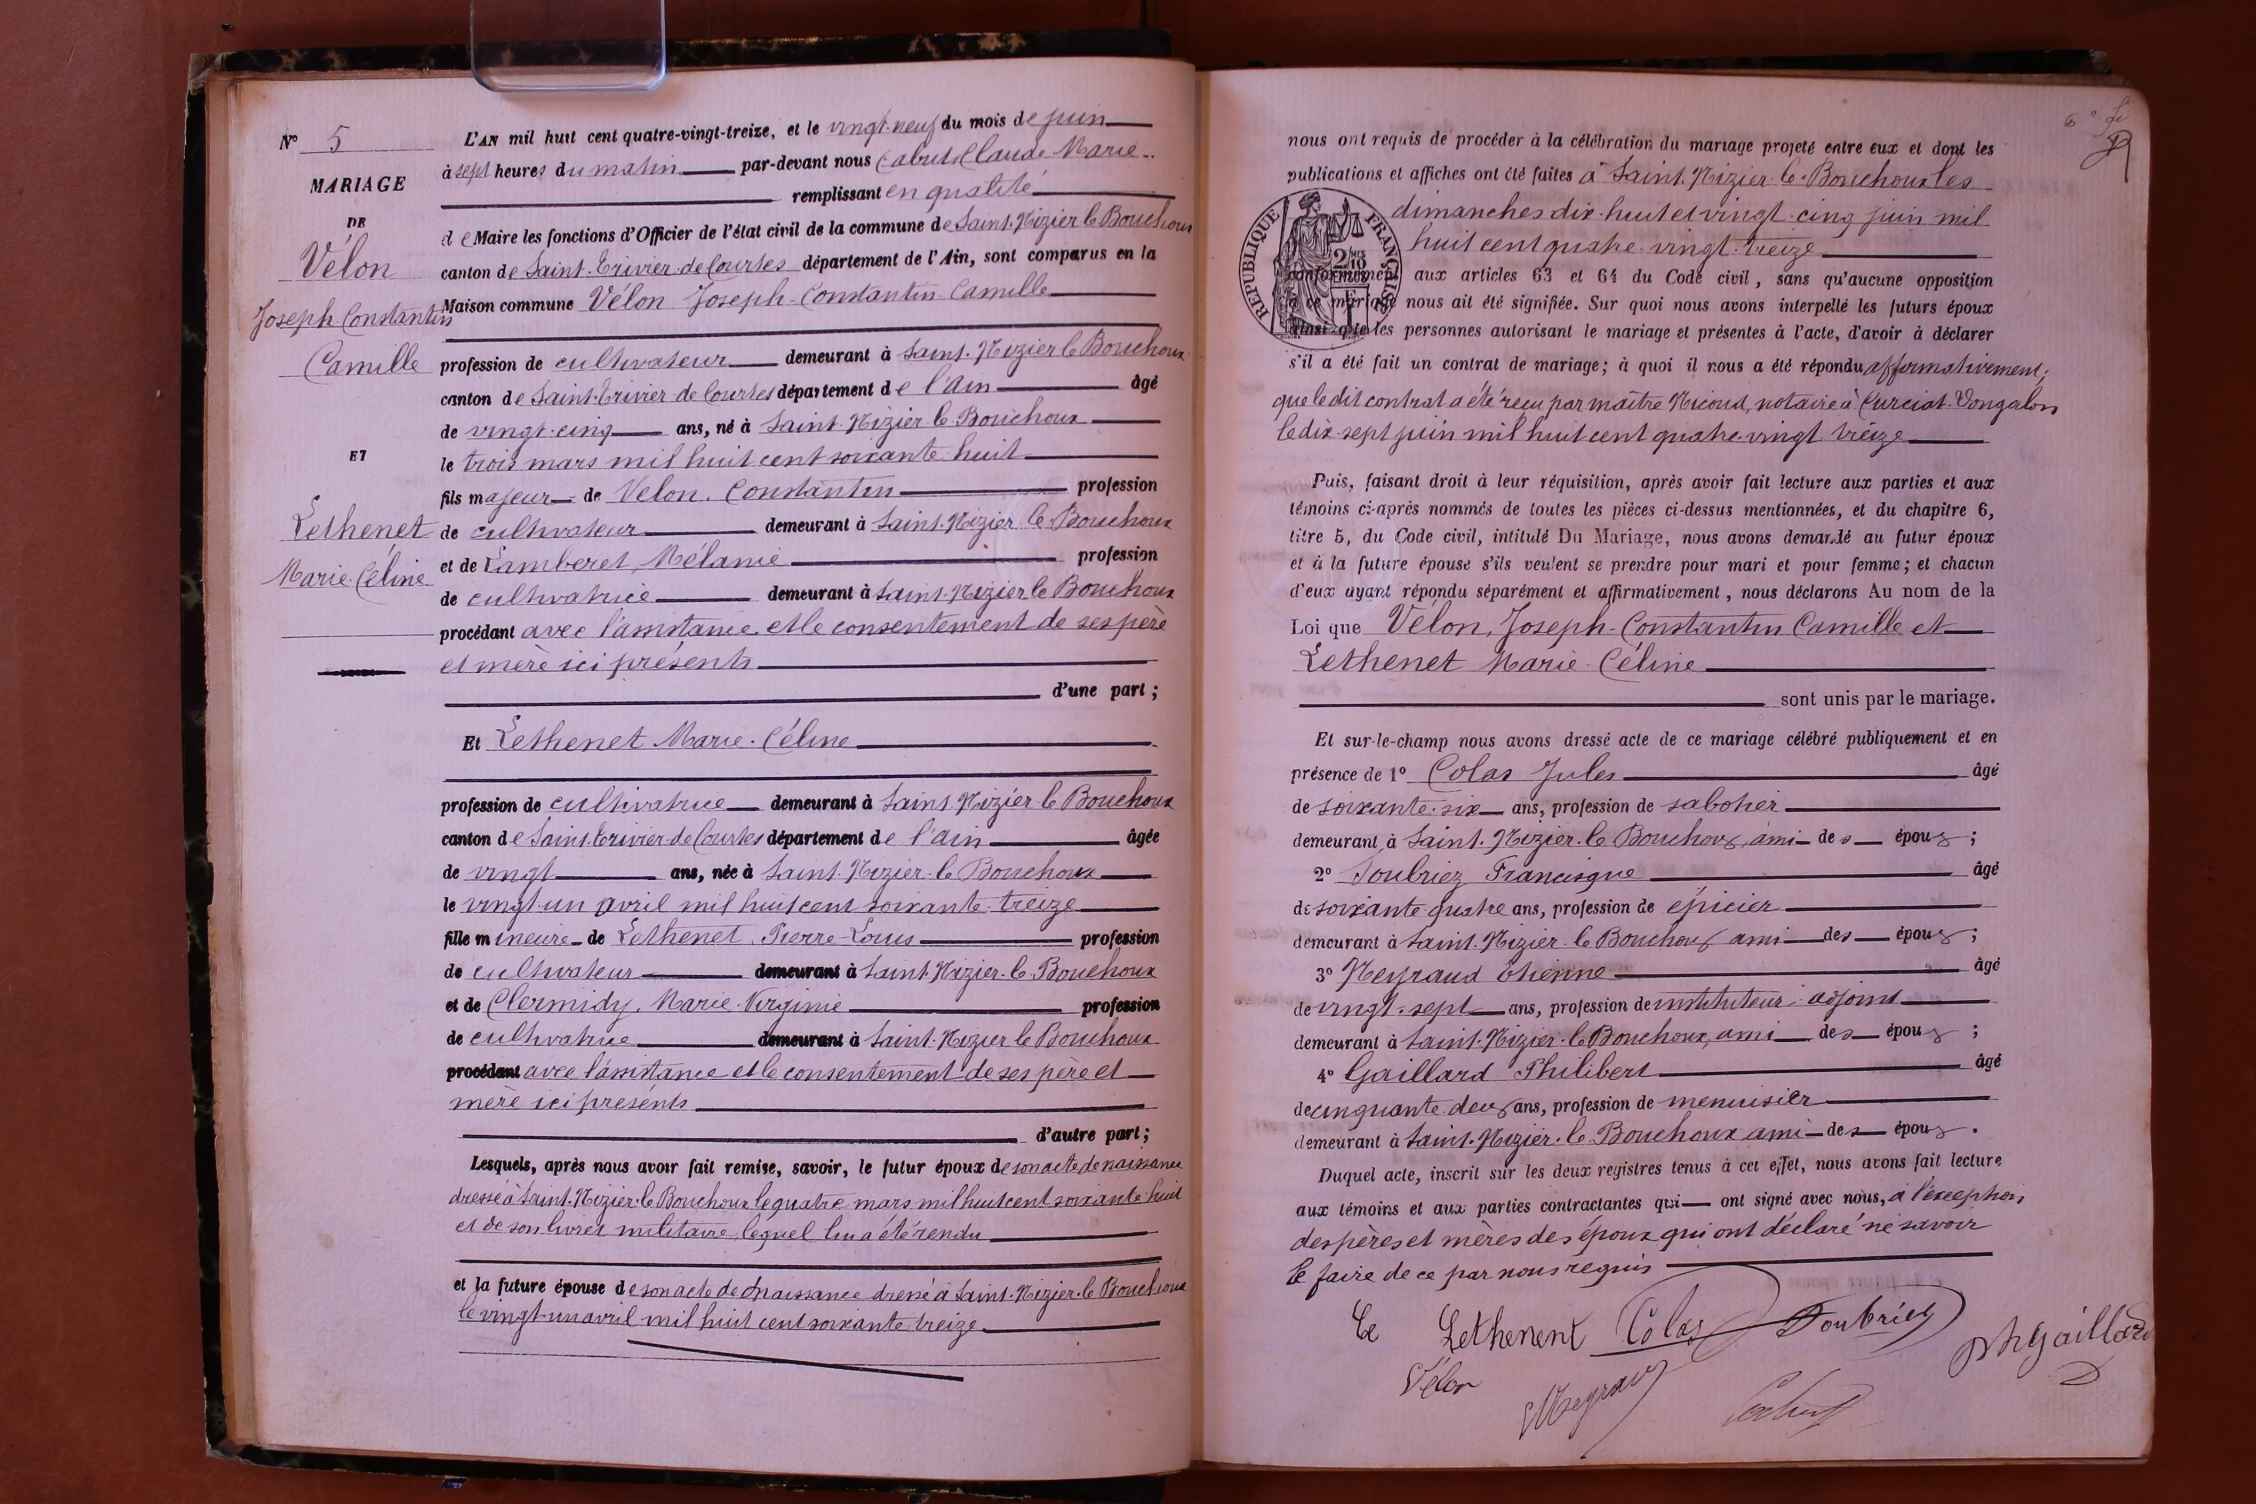 N° 5
MARIAGE
DE
Vélon
Joseph Constantin
Camille
ET
Lethenet
Marie Céline
L'AN mil huit cent quatre-vingt-treize, et le vingt-neuf du mois de juin
à sept heures du matin par-devant nous Cabut Claude Marie
remplissant en qualité
de Maire les fonctions d'Officier de l'état civil de la commune de Saint-Nizier le Bouchoux
canton de Saint-Trivier de Courtes département de l'Ain, sont comparus en la
Maison commune Vélon Joseph-Constantin Camille
profession de cultivateur demeurant à Saint-Nizier le Bouchoux
canton de Saint-Trivier de Courtes département de l'Ain âgé
de vingt-cinq ans, né à Saint-Nizier le Bouchoux
le trois mars mil huit cent soixante-huit
fils majeur de Vélon, Constantin profession
de cultivateur demeurant à Saint-Nizier le Bouchoux
et de Lamberet, Mélanie profession
de cultivatrice demeurant à Saint-Nizier le Bouchoux
procédant avec l'assistance et le consentement de ses père
et mère ici présents
d'une part;
Et Lethenet Marie-Céline
profession de cultivatrice demeurant à Saint-Nizier le Bouchoux
canton de Saint-Trivier de Courtes département de l'Ain âgée
de vingt ans, née à Saint-Nizier le Bouchoux
le vingt-un avril mil huit cent soixante-treize
fille mineure de Lethenet, Pierre-Louis profession
de cultivateur demeurant à Saint-Nizier-le-Bouchoux
et de Clermidy, Marie-Virginie profession
de cultivatrice demeurant à Saint-Nizier le Bouchoux
procédant avec l'assistance et le consentement de ses père et
mère ici présents
d'autre part;
Lesquels, après nous avoir fait remise, savoir, le futur époux de son acte de naissance
dressé à Saint-Nizier-le-Bouchoux le quatre mars mil huit cent soixante-huit
et de son livret militaire, lequel lui a été rendu
et la future épouse de son acte de naissance dressé à Saint-Nizier-le Bouchoux
le vingt-un avril mil huit cent soixante treize
nous ont requis de procéder à la célébration du mariage projeté entre eux et dont les
publications et affiches ont été faites à Saint-Nizier-le-Bouchoux les
dimanches dix-huit et vingt-cinq juin mil
huit cent quatre-vingt-treize
RÉPUBLIQUE FRANÇAISE
conformément aux articles 63 et 64 du Code civil, sans qu'aucune opposition
à ce mariage nous ait été signifiée. Sur quoi nous avons interpellé les futurs époux
ainsi que les personnes autorisant le mariage et présentes à l'acte, d'avoir à déclarer
s'il a été fait un contrat de mariage; à quoi il nous a été répondu affirmativement;
que le dit contrat a été reçu par maître Nicoud, notaire à Curciat-Dongalon
le dix-sept juin mil huit cent quatre-vingt treize
Puis, faisant droit à leur réquisition, après avoir fait lecture aux parties et aux
témoins ci-après nommés de toutes les pièces ci-dessus mentionnées, et du chapitre 6,
titre 5, du Code civil, intitulé Du Mariage, nous avons demandé au futur époux
et à la future épouse s'ils veulent se prendre pour mari et pour femme; et chacun
d'eux ayant répondu séparément et affirmativement, nous déclarons Au nom de la
Loi que Vélon, Joseph-Constantin Camille et
Lethenet Marie-Céline
sont unis par le mariage.
Et sur-le-champ nous avons dressé acte de ce mariage célébré publiquement et en
présence de 1° Colas Jules âgé
de soixante-six ans, profession de sabotier
demeurant à Saint-Nizier-le Bouchoux, ami des époux;
2° Toubriez Francisque âgé
de soixante quatre ans, profession de épicier
demeurant à Saint-Nizier-le Bouchoux ami des époux;
3° Neyraud Etienne âgé
de vingt-sept ans, profession de instituteur-adjoint
demeurant à Saint-Nizier-le Bouchoux, ami des époux;
4° Gaillard Philibert âgé
de cinquante-deux ans, profession de menuisier
demeurant à Saint-Nizier-le Bouchoux ami des époux.
Duquel acte, inscrit sur les deux registres tenus à cet effet, nous avons fait lecture
aux témoins et aux parties contractantes qui ont signé avec nous, à l'exception
des pères et mères des époux qui ont déclaré ne savoir
le faire de ce par nous requis
Ce Lethenent Colas Toubriez
Vélon
Neyraud
ph gaillard